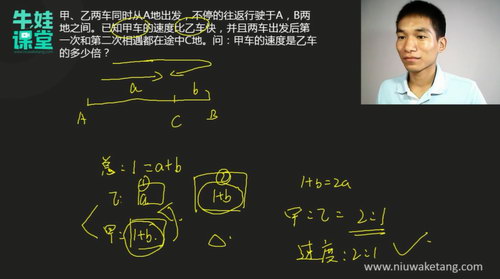 牛娃课堂
甲、乙两车同时从A地出发，不停的往返行驶于A，B两
地之间。已知甲车的速度比乙车快，并且两车出发后第
一次和第二次相遇都在途中C地。问：甲车的速度是乙车
的多少倍？
a b
A C B
总：1=a+b
① ②
乙：a 1+b
甲：1+b
1+b=2a
甲：乙=2:1
速度：2:1
www.niuwaketang.com